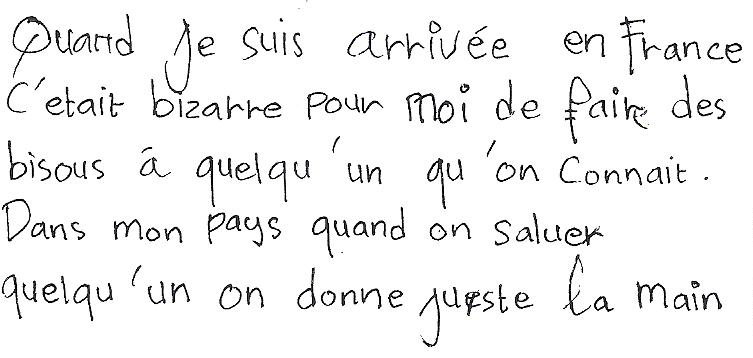 Quand Je suis arrivée en France
C'etait bizarre pour moi de faire des
bisous à quelqu'un qu'on Connait.
Dans mon pays quand on saluer
quelqu'un on donne juste la main